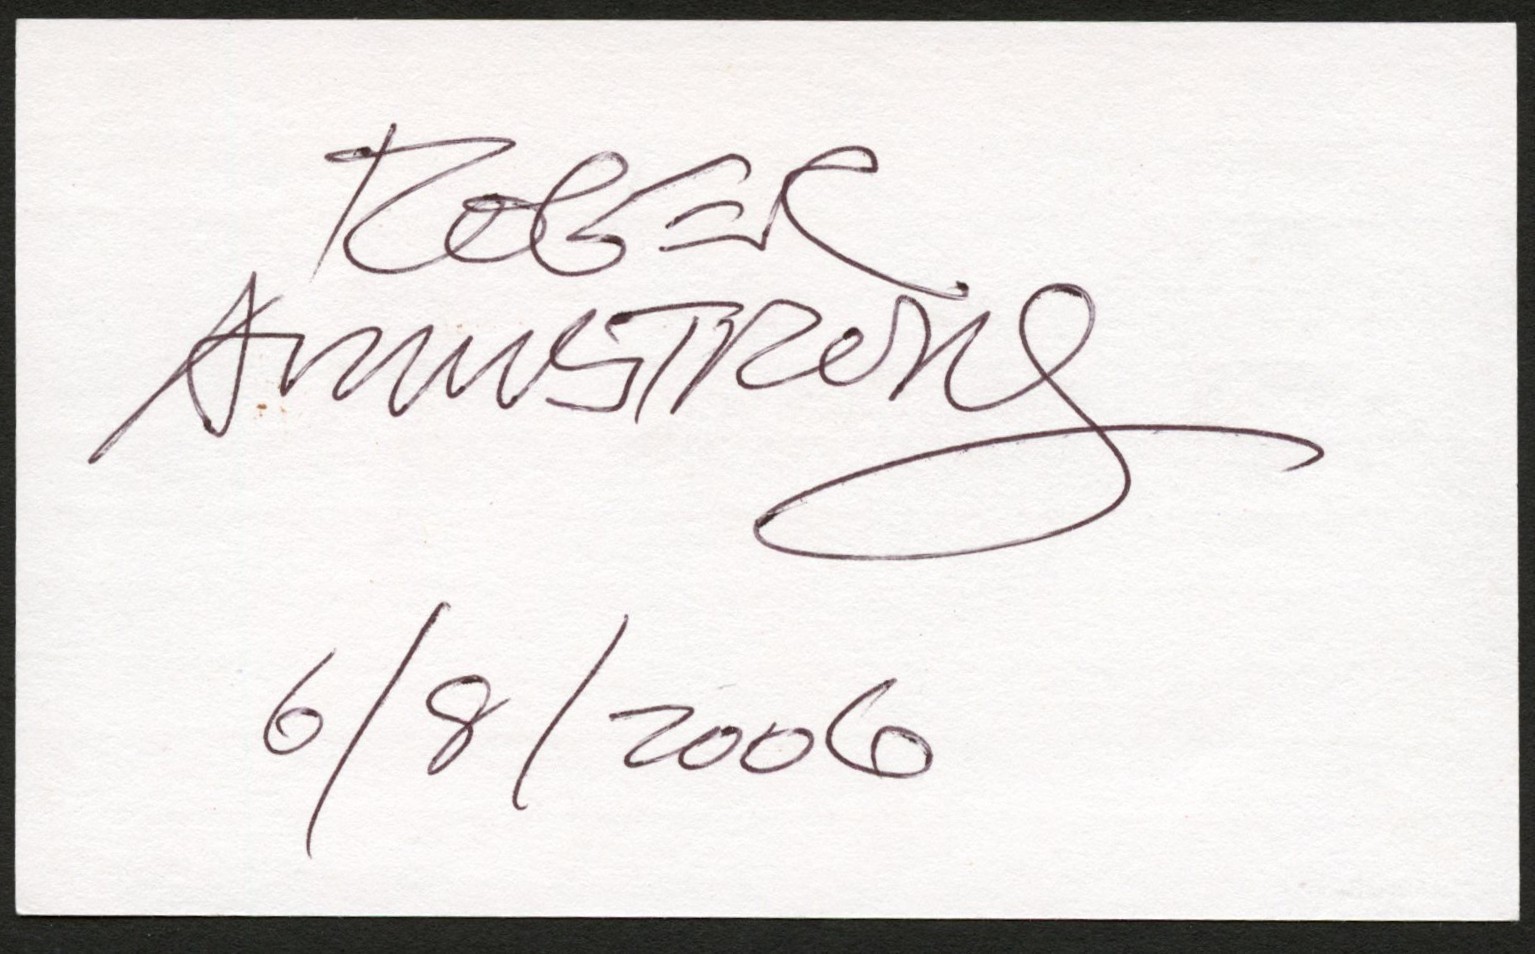 ROGER
ARMSTRONG
6/8/2006